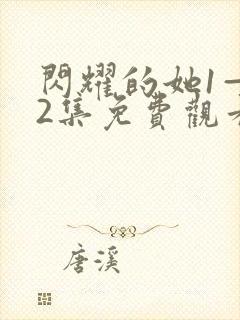 閃耀的她1-
2集免費觀看
唐溪